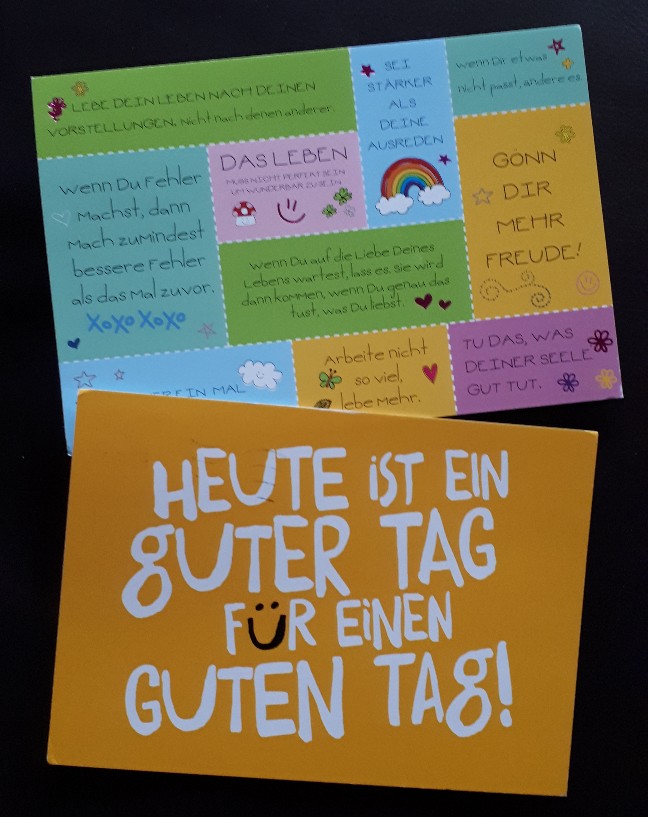 LEBE DEIN LEBEN NACH DEINEN
VORSTELLUNGEN. Nicht nach denen anderer.
SEI
STÄRKER
ALS
DEINE
AUSREDEN
wenn Dir etwas
nicht passt, andere es.
wenn Du Fehler
Machst, dann
Mach zumindest
bessere Fehler
als das Mal zuvor.
XoXo XoXo
DAS LEBEN
MUSS NICHT PERFEKT SEIN
UM WUNDERBAR ZU SEIN
GÖNN
DIR
MEHR
FREUDE!
wenn Du auf die Liebe Deines
Lebens wartest, lass es. sie wird
dann kommen, wenn Du genau das
tust, was Du liebst.
EIN MAL
Arbeite nicht
so viel,
lebe Mehr.
TU DAS, WAS
DEINER SEELE
GUT TUT.
HEUTE iST EIN
gUTER TAG
FÜR EiNEN
GUTEN TAg!